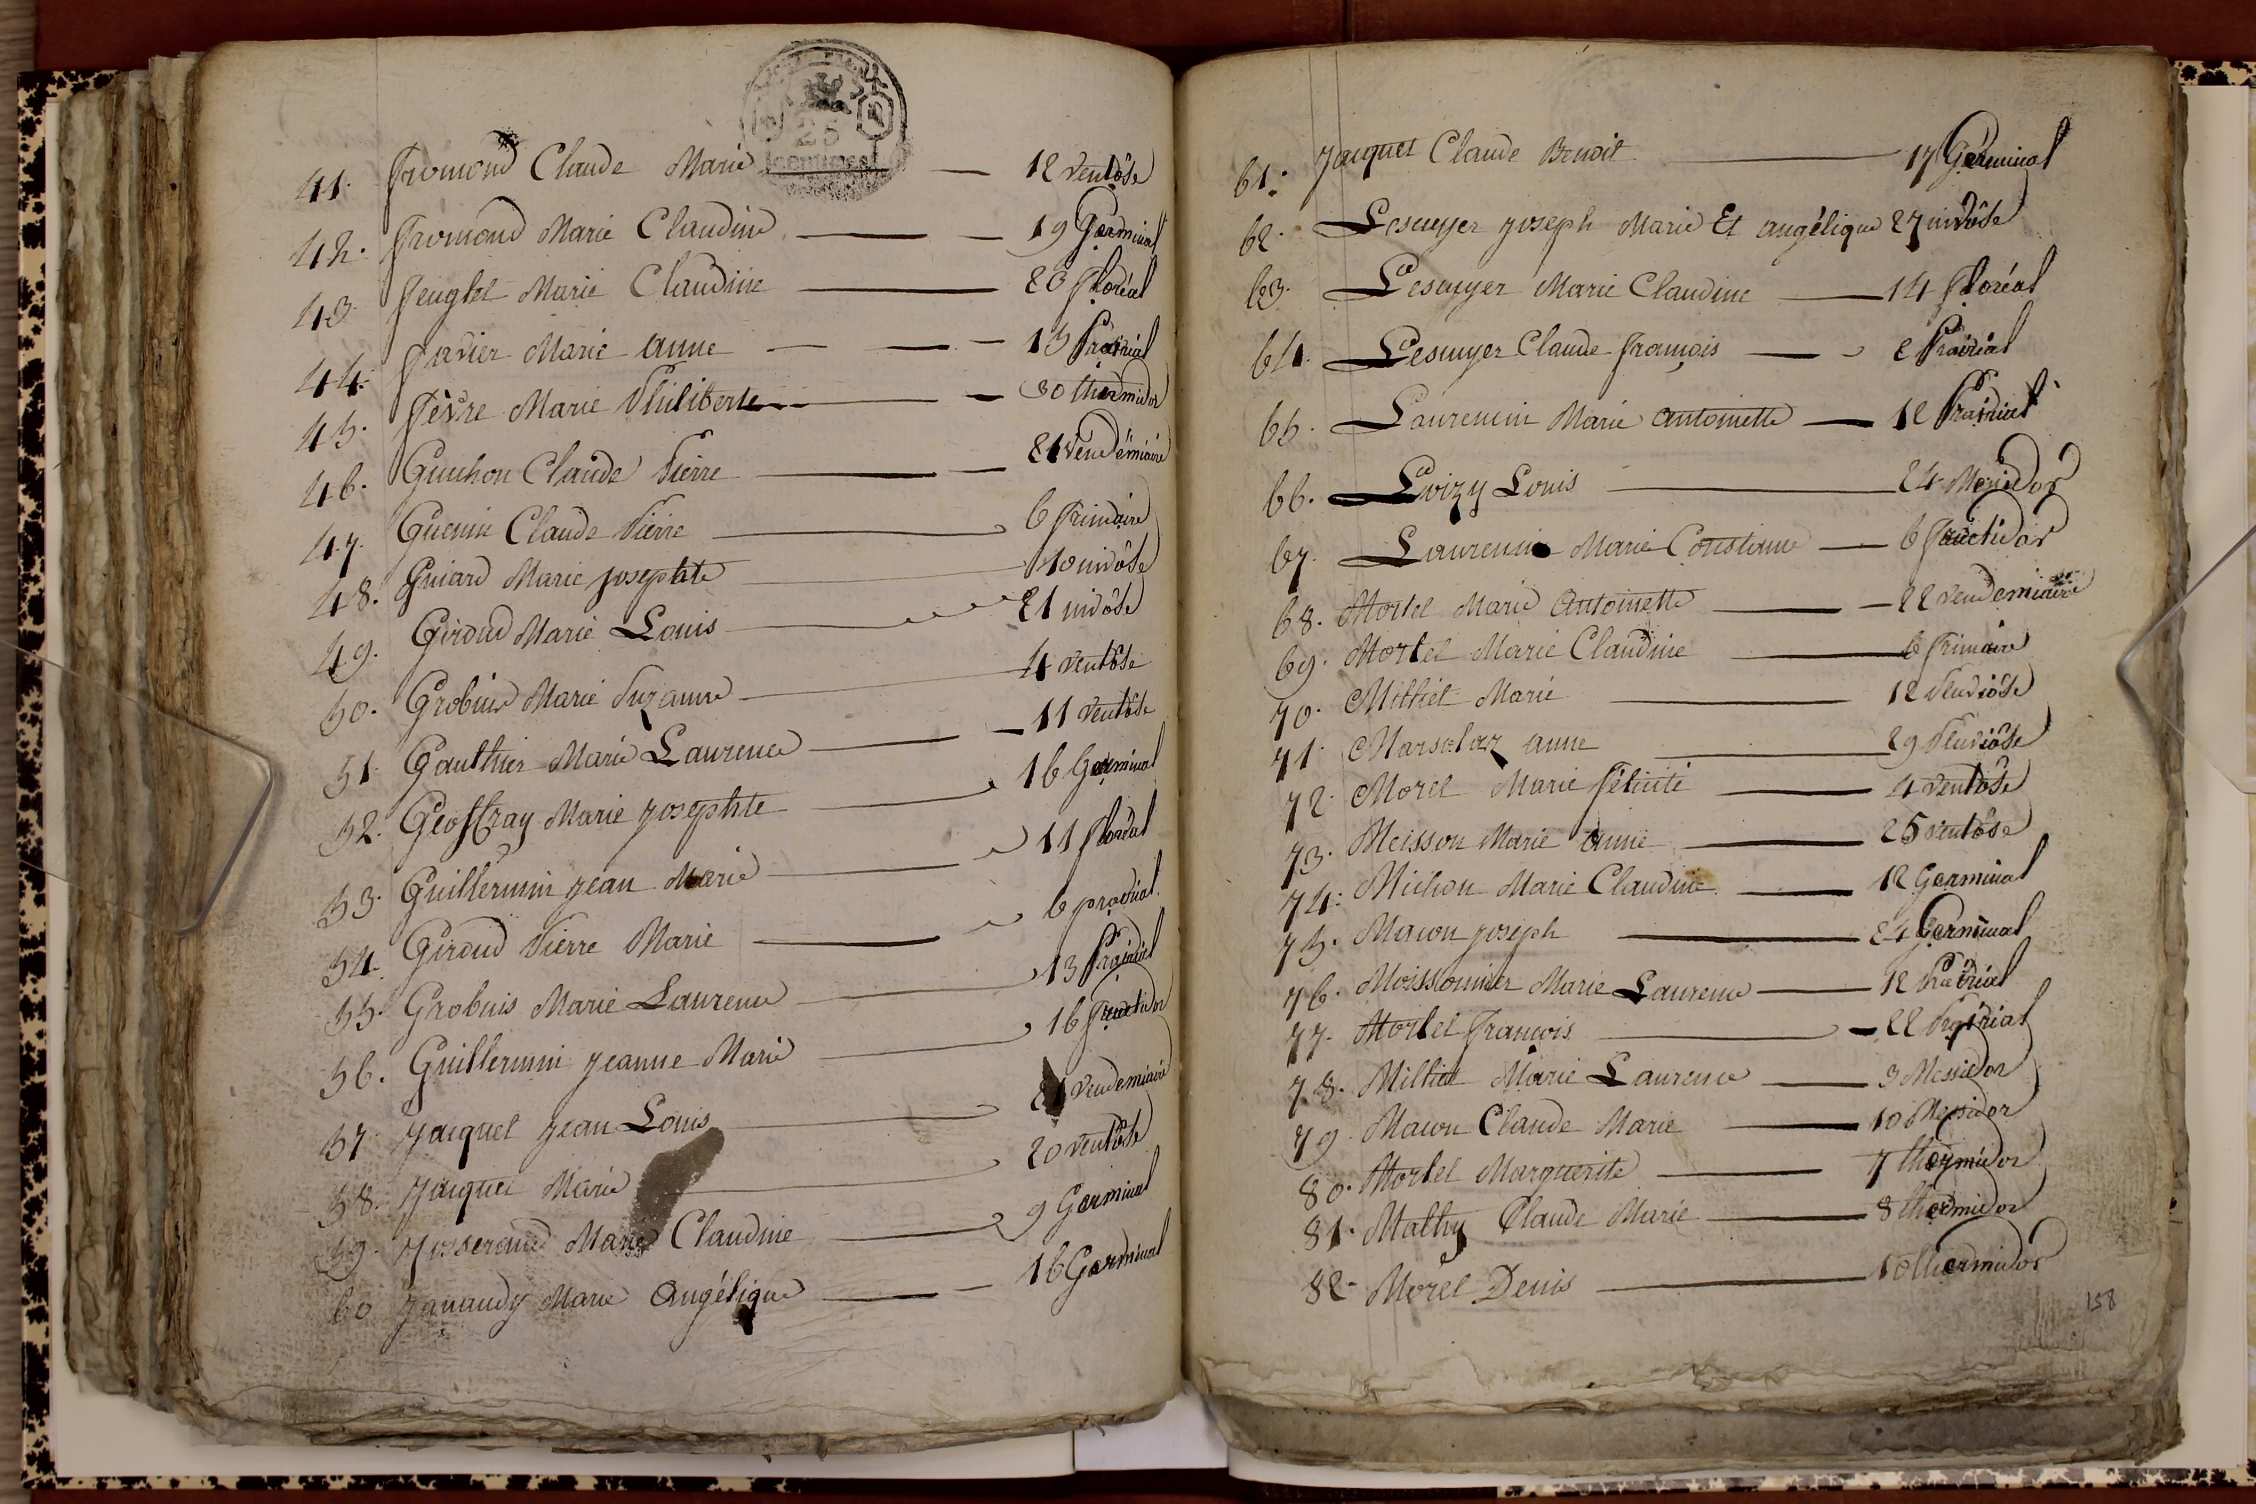 25
centimes
41. Fromond Claude Marie 12 ventôse
42. Fromond Marie Claudine 19 Germinal
43. Feuglet Marie Claudine 23 floréal
44. Favier Marie anne 15 Prairial
45. Fèvre Marie Philiberte 30 thermidor
46. Guichon Claude Pierre 21 Vendémiaire
47. Guenin Claude Pierre 6 frimaire
48. Guiard Marie josephte 10 nivôse
49. Giroud Marie Louis 21 nivôse
50. Grobuis Marie Suzanne 4 ventôse
51. Gauthier Marie Laurence 11 ventôse
52. Geoffray Marie josephte 16 Germinal
53. Guillermin jean Marie 11 floréal
54. Giroud Pierre Marie 6 prairial
55. Grobuis Marie Laurence 13 Prairial
56. Guillermin jeanne Marie 16 fructidor
57. Jacquet jean Louis 21 vendemiaire
58. Jacquet Marie 20 ventôse
59. Josserand Marie Claudine 9 Germinal
60 Janaudy Marie Angélique 16 Germinal
61. Jacquet Claude Benoit 17 Germinal
62. Lescuyer joseph Marie Et angélique 27 nivôse
63. Lescuyer Marie Claudine 14 floréal
64. Lescuyer Claude françois 2 Prairial
65. Laurencin Marie antoinette 12 Prairial
66. Loizy Louis 24 Messidor
67. Laurencin Marie Constance 6 fructidor
68. Mortel Marie Antoinette 22 vendemiaire
69. Mortel Marie Claudine 6 frimaire
70. Milliet Marie 12 Pluviôse
71. anne 29 Pluviôse
72. Morel Marie félicité 4 ventôse
73. Meisson Marie anne 25 ventôse
74. Michon Marie Claudine 12 Germinal
75. Macon joseph 24 Germinal
76. Moissonnier Marie Laurence 12 Prairial
77. Mortel françois 22 Prairial
78. Milliet Marie Laurence 3 Messidor
79. Macon Claude Marie 10 Messidor
80. Mortel Marguerite 7 thermidor
81. Mathy Claude Marie 8 thermidor
82. Morel Denis 10 thermidor
158